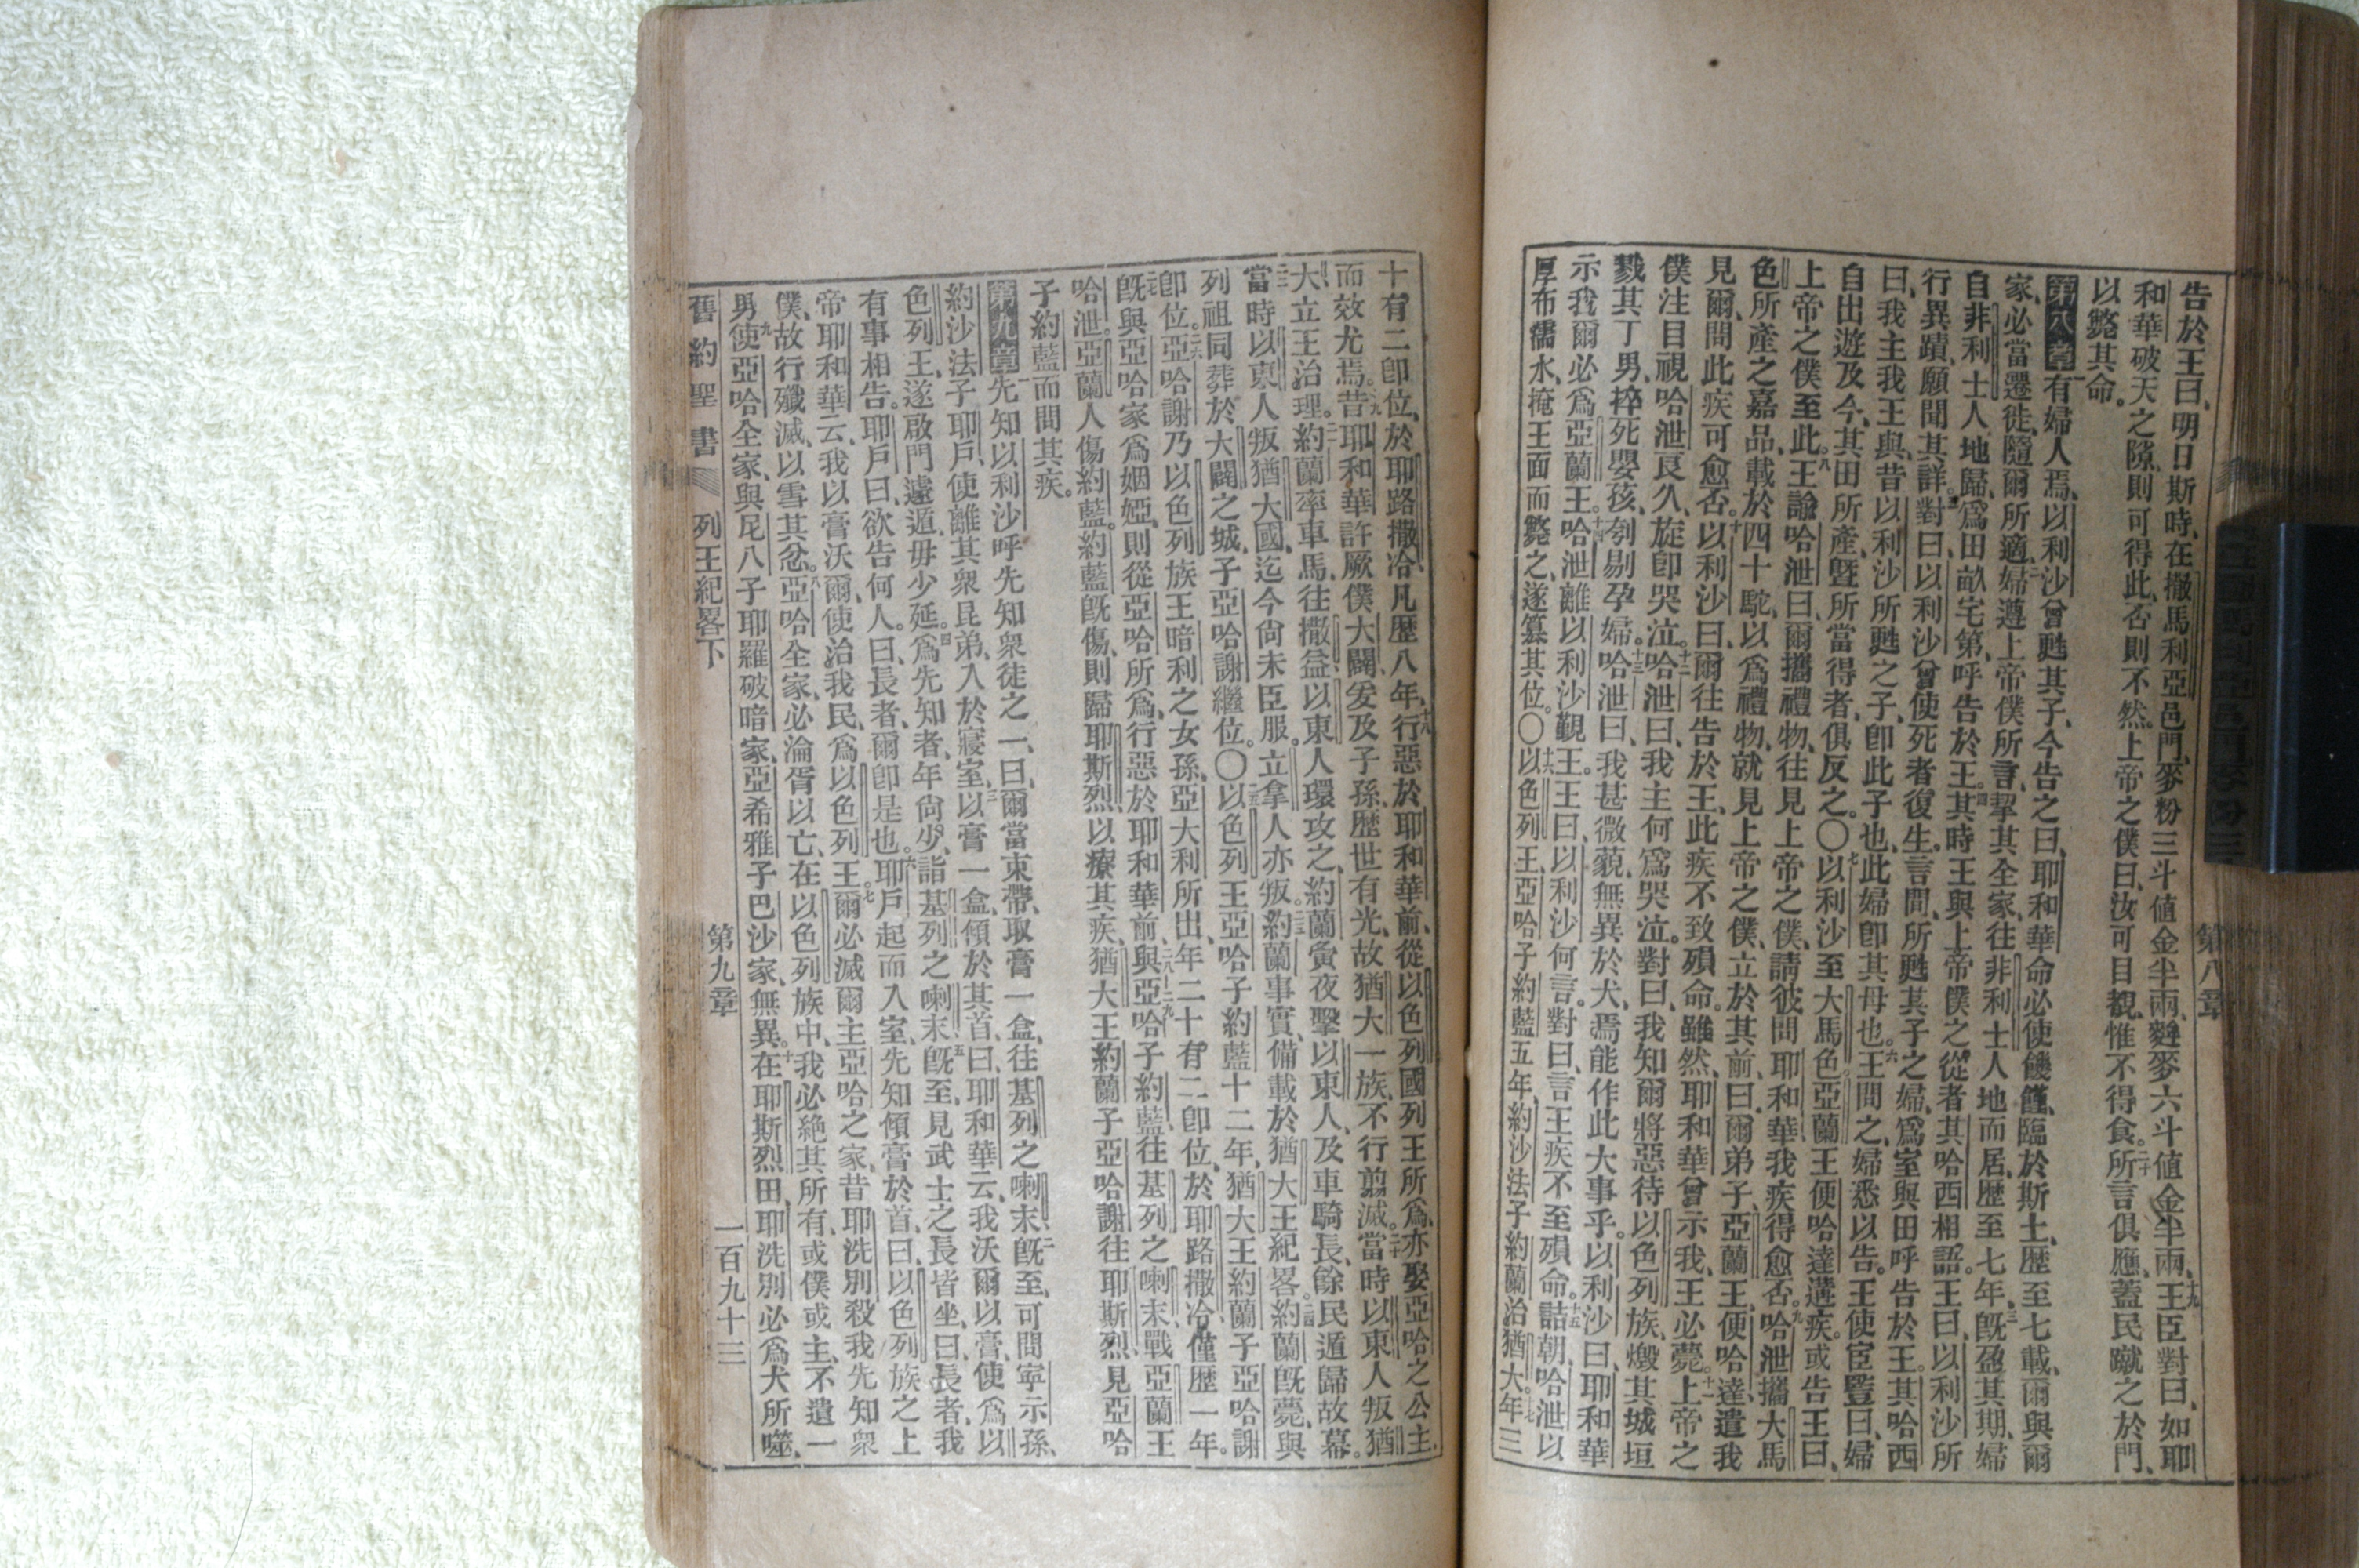 告於王曰、明日斯時、在撒馬利亞邑門、麥粉三斗値金半兩、麰麥六斗値金半兩、十九王臣對曰、如耶
和華破天之隙、則可得此、否則不然。上帝之僕曰、汝可目覩、惟不得食。二十所言俱應、蓋民蹴之於門、
以斃其命。
第八章 一有婦人焉、以利沙曾甦其子、今告之曰、耶和華命必使饑饉、臨於斯土、歷至七載、爾與爾
家、必當遷徙、隨爾所適、二婦遵上帝僕所言、挈其全家、往非利士人地而居、歷至七年、三旣盈其期、婦
自非利士人地歸、爲田畝宅第、呼告於王。四其時王與上帝僕之從者、其哈西相語。王曰、以利沙所
行異蹟、願聞其詳。五對曰、以利沙曾使死者復生、言間、所甦其子之婦、爲室與田呼告於王。其哈西
曰、我主我王與、昔以利沙所甦之子、卽此子也、此婦卽其母也。六王問之、婦悉以告。王使宦豎曰、婦
自出遊及今、其田所產、曁所當得者、俱反之。〇七以利沙至大馬色、亞蘭王便哈達遘疾。或告王曰、
上帝之僕至此。八王諭哈泄曰、爾攜禮物、往見上帝之僕、請彼問耶和華、我疾得愈否。九哈泄攜大馬
色所產之嘉品、載於四十駝、以爲禮物、就見上帝之僕、立於其前、曰、爾弟子、亞蘭王便哈達遣我
見爾、問此疾可愈否。十以利沙曰、爾往告於王、此疾不致殞命。雖然、耶和華曾示我、王必薨。十一上帝之
僕注目視哈泄良久、旋卽哭泣。十二哈泄曰、我主何爲哭泣。對曰、我知爾將惡待以色列族、燬其城垣
戮其丁男、捽死嬰孩、刳剔孕婦。十三哈泄曰、我甚微藐、無異於犬、焉能作此大事乎。以利沙曰、耶和華
示我、爾必爲亞蘭王。十四哈泄離以利沙覲王。王曰、以利沙何言。對曰、言王疾不至殞命。十五詰朝、哈泄以
厚布濡水、掩王面而斃之、遂簒其位。〇十六以色列王、亞哈子約藍五年、約沙法子約蘭治猶大、十七年三
第八章
十有二卽位、於耶路撒冷凡歷八年、十八行惡於耶和華前、從以色列國列王所爲、亦娶亞哈之公主、
而效尤焉。十九昔耶和華許厥僕大闢、爰及子孫、歷世有光、故猶大一族、不行翦滅。二十當時以東人叛猶
大、立王治理。二一約蘭率車馬、往撒益、以東人環攻之、約蘭夤夜擊以東人、及車騎長、餘民遁歸故幕。
二二當時以東人叛猶大國、迄今尙未臣服。立拿人亦叛。二三約蘭事實、備載於猶大王紀畧。二四約蘭旣薨、與
列祖同葬於大闢之城、子亞哈謝繼位。〇二五以色列王亞哈子約藍十二年、猶大王約蘭子亞哈謝
卽位。二六亞哈謝乃以色列族王暗利之女孫、亞大利所出、年二十有二卽位、於耶路撒冷、僅歷一年。
二七旣與亞哈家爲姻婭、則從亞哈所爲、行惡於耶和華前、二八二九與亞哈子約藍、往基列之喇末、戰亞蘭王
哈泄。亞蘭人傷約藍。約藍旣傷、則歸耶斯烈、以療其疾、猶大王約蘭子亞哈謝往耶斯烈、見亞哈
子約藍而問其疾。
第九章 一先知以利沙呼先知衆徒之一、曰、爾當束帶、取膏一盒、往基列之喇末、二旣至、可問寧示孫、
約沙法子耶戶、使離其衆昆弟、入於寢室、三以膏一盒、傾於其首、曰、耶和華云、我沃爾以膏、使爲以
色列王、遂啟門遽遁、毋少延。四爲先知者、年尙少、詣基列之喇末、五旣至、見武士之長皆坐、曰、長者、我
有事相告。耶戶曰、欲告何人。曰、長者、爾卽是也。六耶戶起而入室、先知傾膏於首、曰、以色列族之上
帝耶和華云、我以膏沃爾、使治我民、爲以色列王。七爾必滅爾主亞哈之家、昔耶洗別殺我先知衆
僕、故行殲滅、以雪其忿。八亞哈全家、必淪胥以亡、在以色列族中、我必絕其所有、或僕或主、不遺一
男、九使亞哈全家、與尼八子耶羅破暗家、亞希雅子巴沙家、無異。十在耶斯烈田、耶洗別必爲犬所噬、
舊約聖書 列王紀畧下 第九章 一百九十三